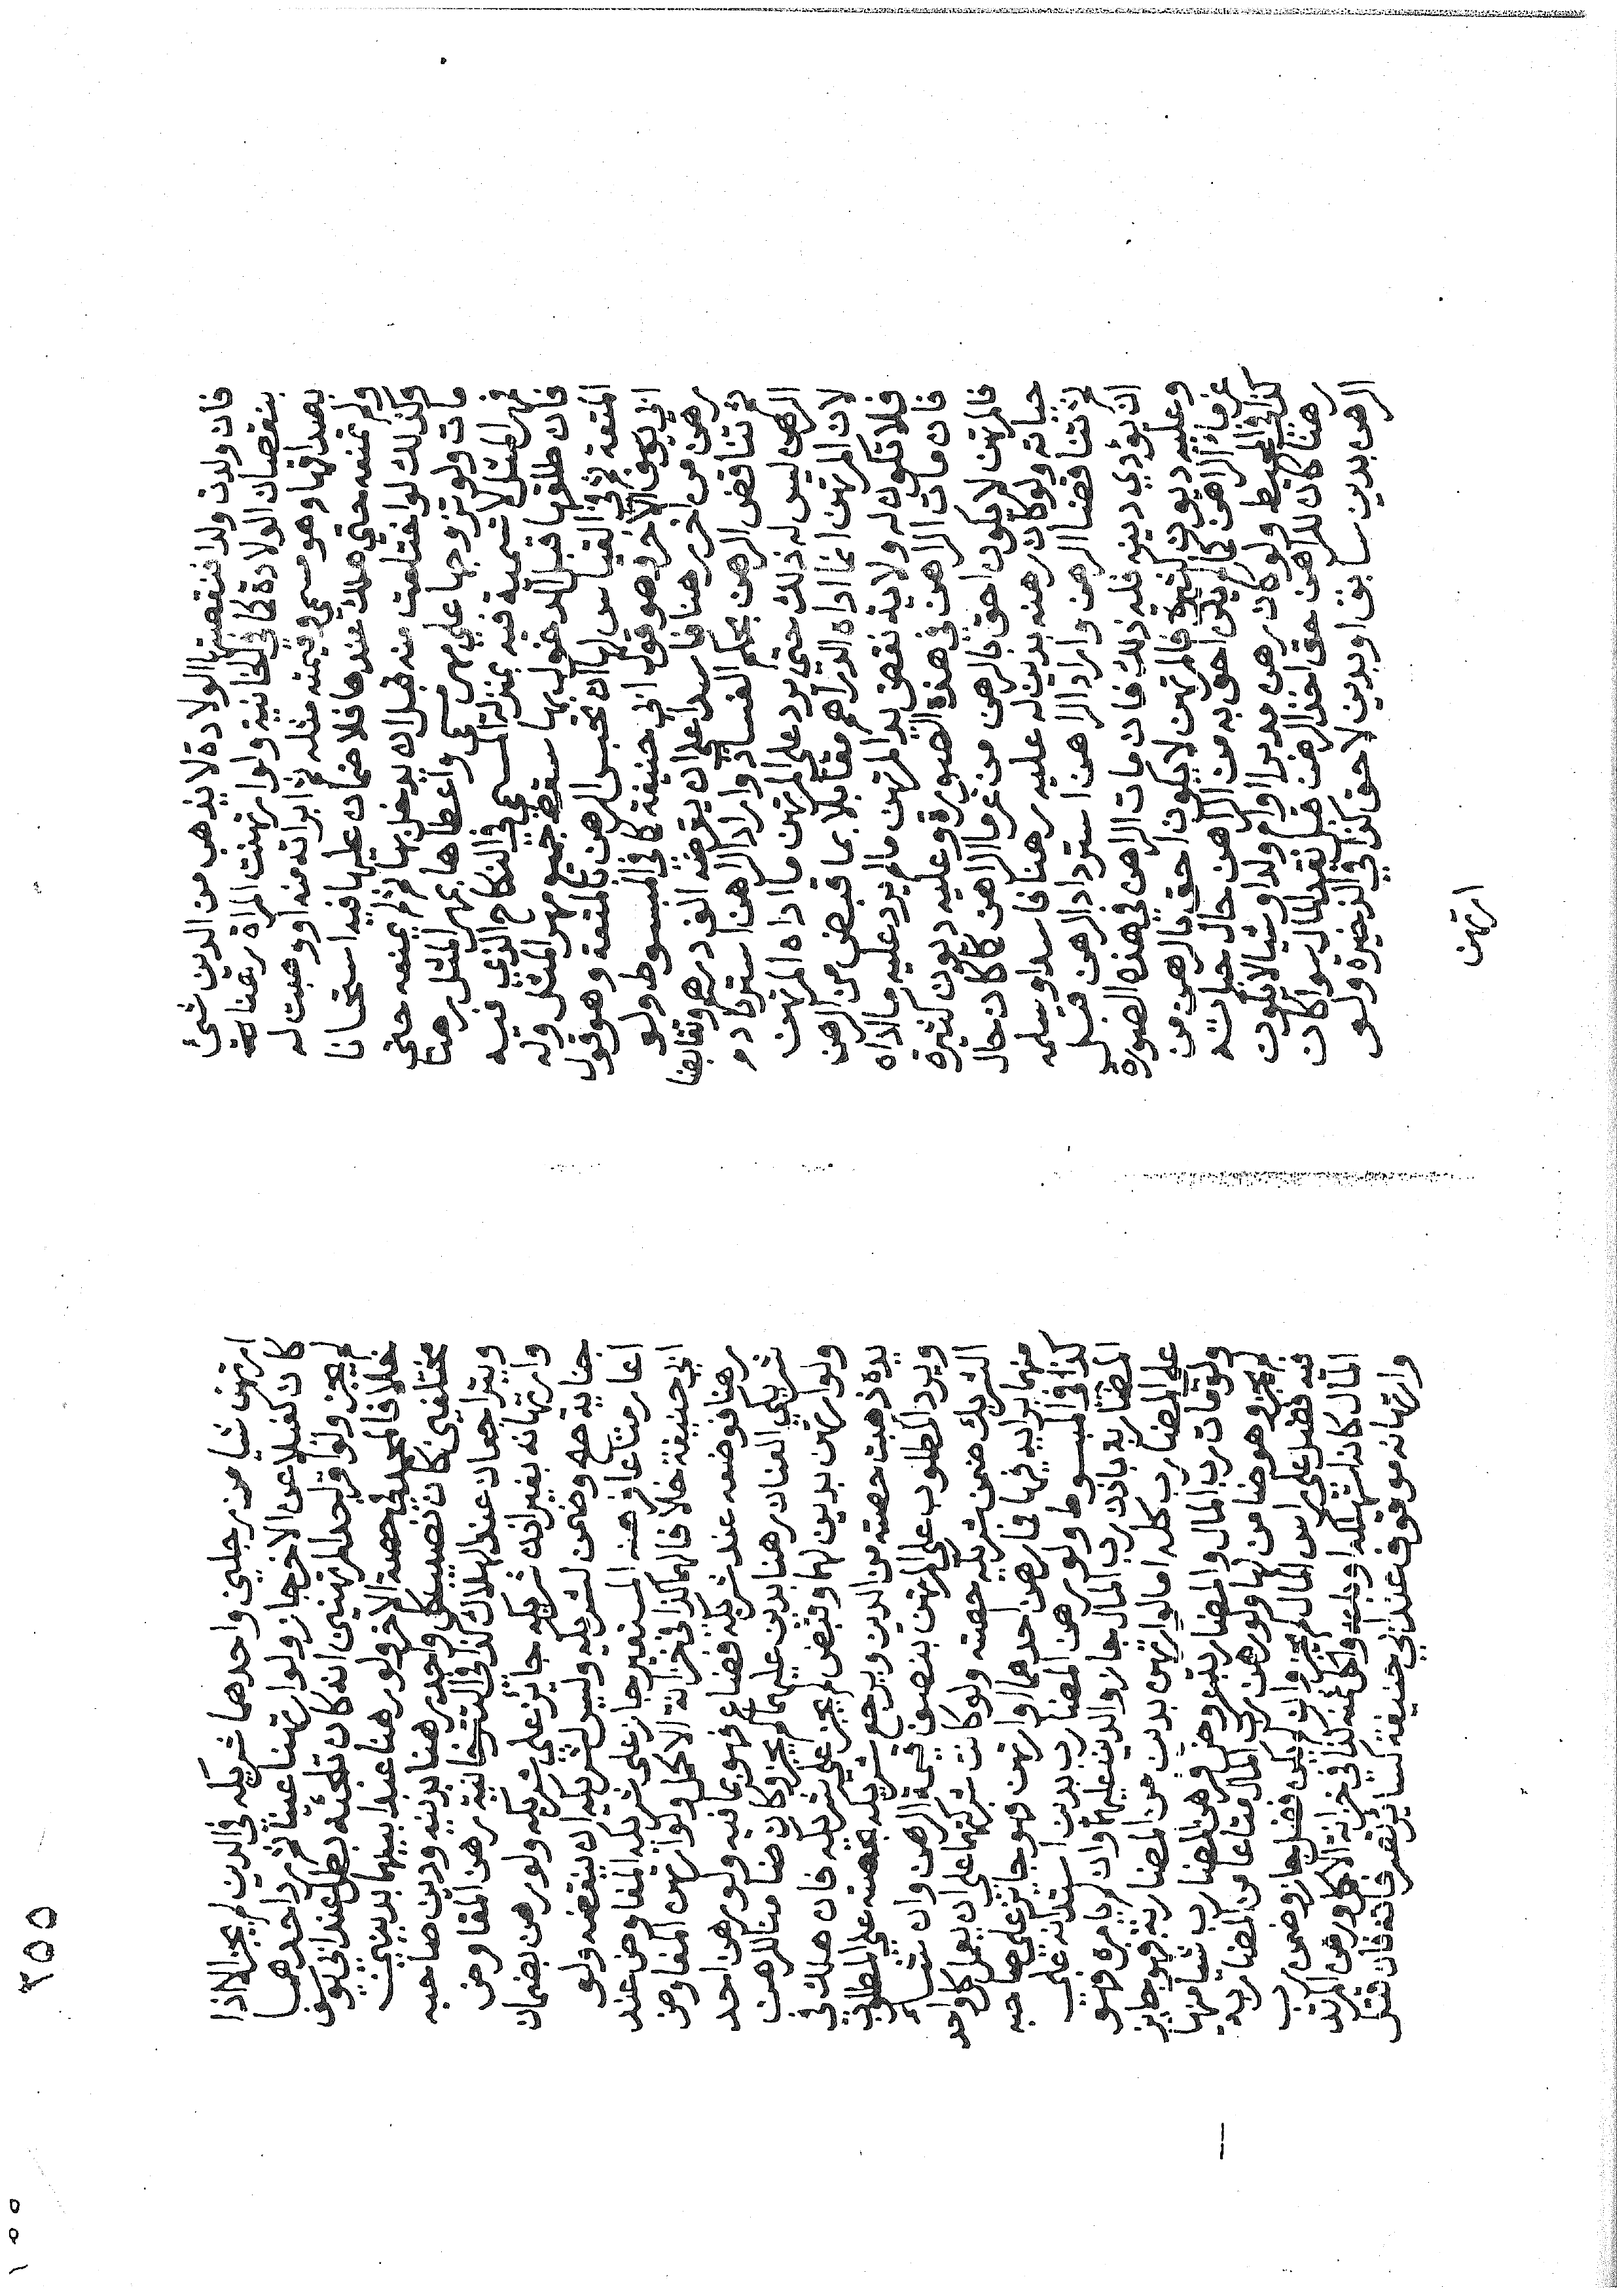 فان ولدت ولدا فنقصتها الولادة لا يذهب من الدين شئ
بنقصان الولادة كما في الخانية ولو ارتهنت المراة رهنا
بصداقها وهو مسمى وقيمته مثله ثم ابراته منه او وهبت له
ولم تمنعه حتي هلك عندها فلا ضمان عليها فيه استحسانا
وكذلك لو اختلعت منه قبل ان يدخل بها ثم لم يمنعه حتى
مات ولو تزوجها علي مهر مسمى واعطاها بمهر المثل رهنا
فمهر المثل لا تسمية فيه بمنزلة المسمى في النكاح الذي فيه
فان طلقها قبل الدخول بها سقط جميع مهر المثل وله
المتعة ثم في القياس ليس لها ان تحبس الرهن بالمتعة وهو قول
ابي يوسف الاخر وهو قول ابي حنيفة كما في المبسوط ولو
رهن من اخر رهنا فاسدا علي ان يقرضه الف درهم وتقابضا
ثم تناقضا الرهن بحكم الفساد واراد الراهن استرداد
الرهن ليس له ذلك حتى يرد على المرتهن ما اداه المرتهن
لان المرتهن انما اداه الدراهم مقابلا بما قبض من الرهن
فلا تكون له ولاية نقض يد المرتهن مالم يرد عليه ما اداه
فان مات الراهن في هذه الصورة وعليه ديون كثيرة
فالمرتهن لا يكون احق بالرهن من غرما الراهن كما كان حال
حياته ولو كان رهنه بدين له عليه رهنا فاسدا وسلمه
ثم تناقضا الرهن واراد الراهن استرداد الرهن قبل
ان يودي دينه فله ذلك فان مات الراهن في هذه الصورة
وعليه ديون كثيرة فالمرتهن لا يكون احق بالرهن من
غرماء الراهن كما لم يكن احق به من الراهن حال حياته
كذا في المحيط ولو كان رهن مدبرا او ام ولد او شيا لا يكون
رهنا كان للراهن حق اخذ الرهن قبل نقد المال سوا كان
الرهن بدين سابق او بدين لاحق كذا في الذخيرة ولو
ارتهن
ارتهن شيا من رجلين واحدهما شريكه في الدين لم يجز الا اذا
كان كفيلا عن الاخر جاز ولو ارتهنا عينا ثم رد احدهما
لم يجز ولو اقر احد المرتهنين انه كان تلجئه بطل عند ابي يوسف
خلافا لمحمد في حصة الاخر ولو رهنا عبدا بينهما بدينين
مختلفين كان نصيب كل واحد رهنا بدينه ودين صاحبه
ويتراجعان عند الهلاك كذا في التتارخانية رهن المفاوض
وارتهانه بغير اذن شريكه جايز على شريكه ولو رهن بضمان
جناية صح وضمن لشريكه وليس لشريكه ان ينقضه ولو
اعار متاعا فرهنه المستعير جاز على شريكه المفاوض عند
ابي حنيفة خلافا لهما كذا في خزانة الاكمل ولو ارتهن المفاوض
رهنا فوضعه عند شريكه فضاع فهو بما فيه ولو رهن احد
شريكي العنان رهنا بدين عليهما لم يجز وكان ضامنا للرهن
ولو ارتهن بدين لهما وقبض لم يجز علي شريكه فان هلك في
يده ذهبت حصته من الدين ويرجع شريكه بحصته علي المطلوب
ويرد المطلوب على المرتهن بنصف قيمة الرهن وان شاء
الشريك ضمن شريكه حصته ولو كانت شركتهما علي ان يعمل كل واحد
منهما برايه فيها فما رهن احدهما او ارتهن فهو جايز علي صاحبه
كذا في المبسوط ولو رهن المضارب بدين استدانه علي
المضاربة باذن رب المال جاز والدين عليهما وان لم يامره فهو
على المضارب كله اما لو ارتهن بدين من المضاربة فهو جايز
ولو مات رب المال والمضاربة عروض فرهن المضارب شيا منها
لم يجز وهو ضامن لها ولو رهن رب المال متاعا من المضاربة
فيه فضل على راس المال لم يجز وان لم يكن فضل جاز وضمن رب
المال كانه استهلكه او باعه واكل ثمنه كذا في خزانة الاكمل ورهن المرتد
وارتهانه موقوف عند ابي حنيفة كسائر تصرفاته فان قتل
٣٥٥